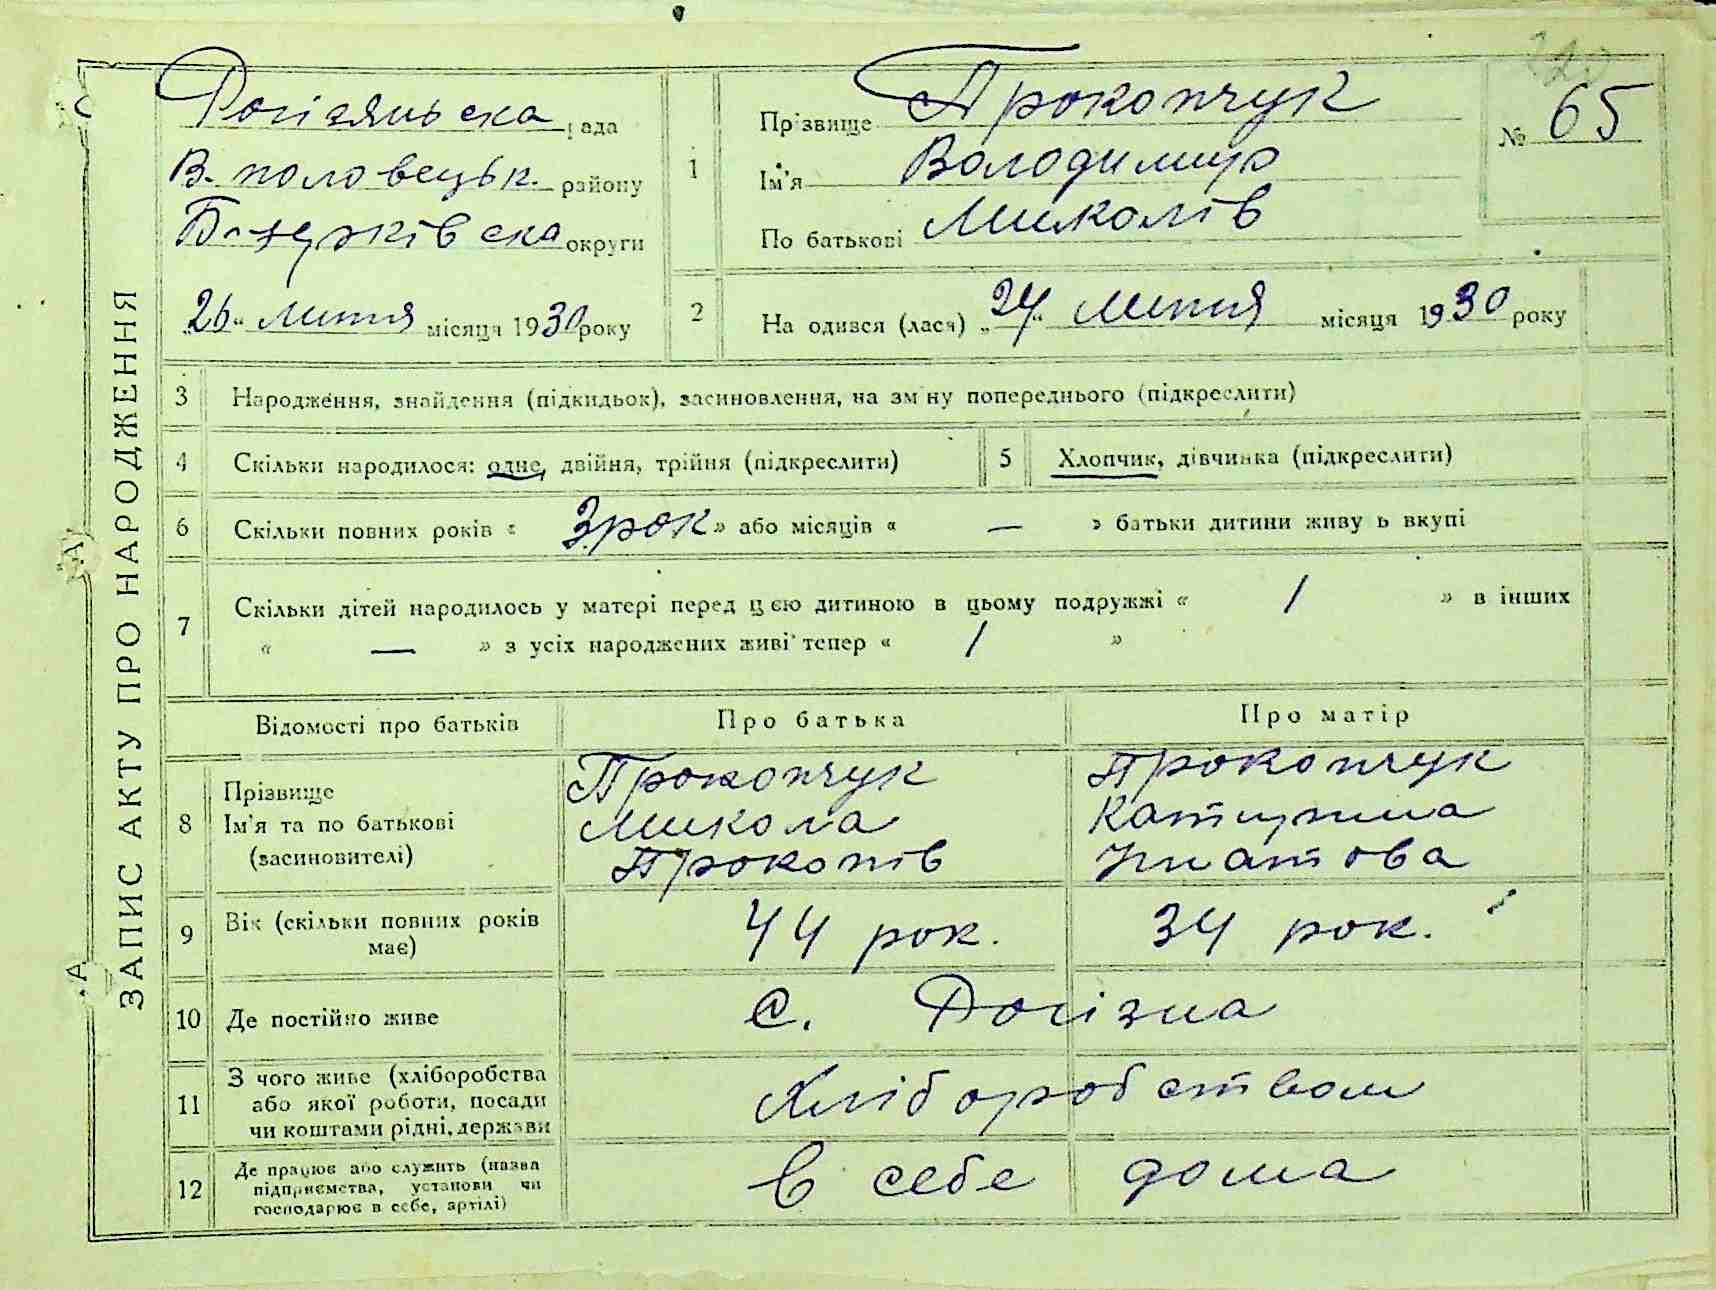 ЗАПИС АКТУ ПРО НАРОДЖЕННЯ
Рогізянська рада
В. половецьк. району
Б-церківська округи
„26“ липня місяця 1930 року
1
Прізвище Прокопчук
Ім'я Володимир
По батькові Миколів
№ 65
2
На одився (лася) „24“ липня місяця 1930 року
3 Народження, знайдення (підкидьок), засиновлення, на зм ну попереднього (підкреслити)
4 Скільки народилося: одне, двійня, трійня (підкреслити)
5 Хлопчик, дівчинка (підкреслити)
6 Скільки повних років « 3 рок » або місяців « — » батьки дитини живу ь вкупі
7 Скільки дітей народилось у матері перед цією дитиною в цьому подружжі « 1 » в інших
« — » з усіх народжених живі тепер « 1 »
Відомості про батьків Про батька Про матір
8 Прізвище
Ім'я та по батькові
(засиновителі)
Прокопчук
Микола
Прокопів
Прокопчук
Катерина
Гнатова
9 Вік (скільки повних років
має)
44 рок. 34 рок.
10 Де постійно живе с. Рогізна
11 З чого живе (хліборобства
або якої роботи, посади
чи коштами рідні, держави
Хліборобством
12 Де працює або служить (назва
підприємства, установи чи
господарює в себе, артілі)
в себе дома